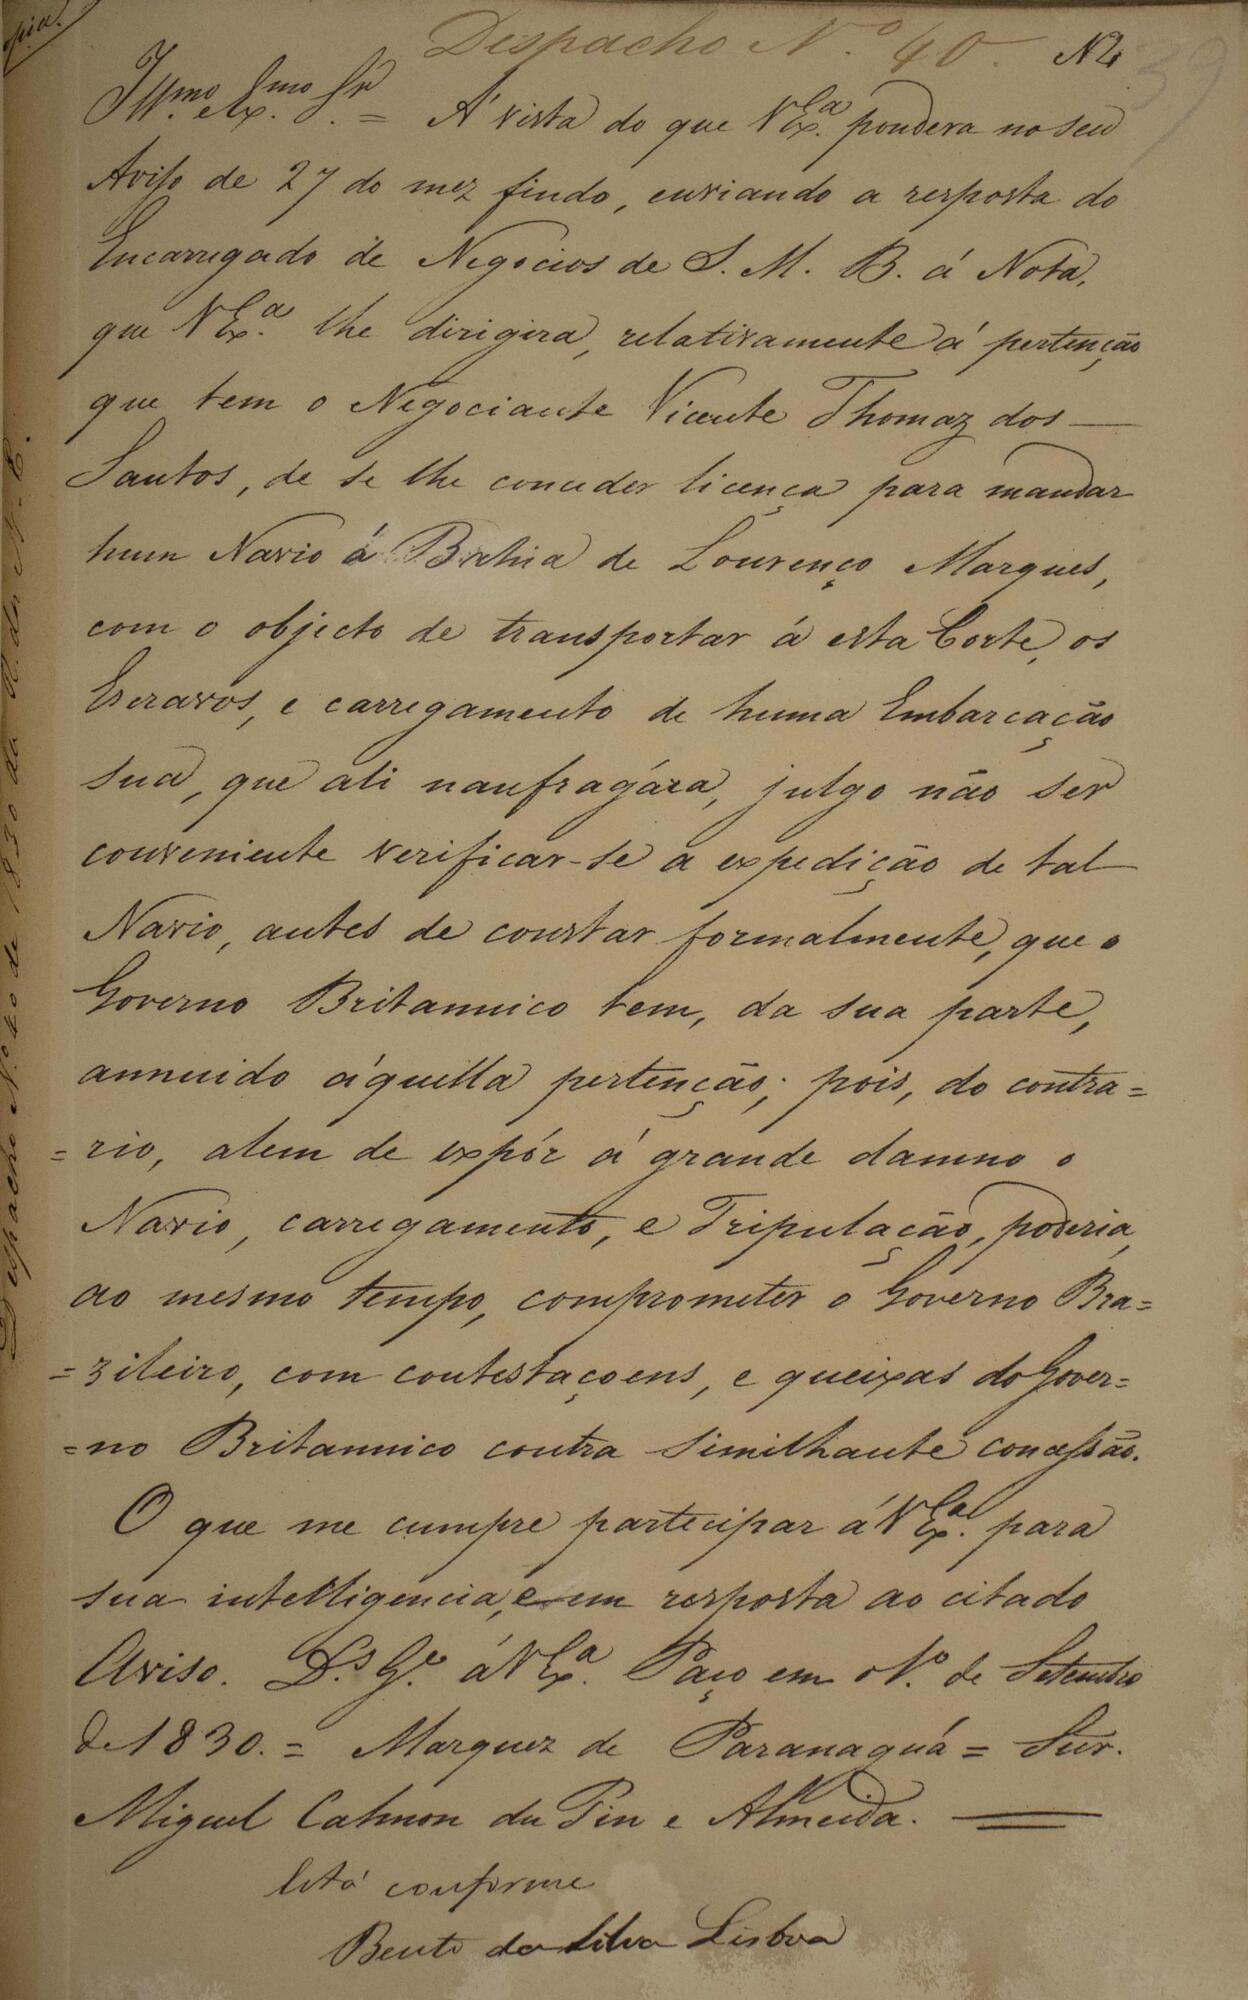 Copia.
Despacho N.º 40.
N 4
39
Ill.mo e Ex.mo Sr. = Á vista do que V Ex.ª pondera no seu
Aviso de 27 do mez findo, enviando a resposta do
Encarregado de Negocios de S. M. B. á Nota,
que V Ex.ª lhe dirigira, relativamente á pertenção
que tem o Negociante Vicente Thomaz dos
Santos, de se lhe conceder licença para mandar
hum Navio á Bahia de Lourenço Marques,
com o objecto de transportar á esta Corte, os
Escravos, e carregamento de huma Embarcação
sua, que ali naufragára, julgo não ser
conveniente verificar-se a expedição de tal
Navio, antes de constar formalmente, que o
Governo Britannico tem, da sua parte,
annuido áquella pertenção; pois, do contra=
=rio, alem de expór á grande damno o
Navio, carregamento, e Tripulação, poderia,
ao mesmo tempo, comprometer o Governo Bra=
=zileiro, com contestaçoens, e queixas do Gover=
=no Britannico contra similhante concessão.
O que me cumpre partecipar á V Ex.ª para
sua intelligencia, e em resposta ao citado
Aviso. D.s G.e á V Ex.ª Paço em 1.º de Setembro
de 1830. = Marquez de Paranaguá = Snr.
Miguel Calmon du Pin e Almeida.
Está conforme
Bento da Silva Lisboa
Despacho N.º 40 de 1830 da R. dos N. E.